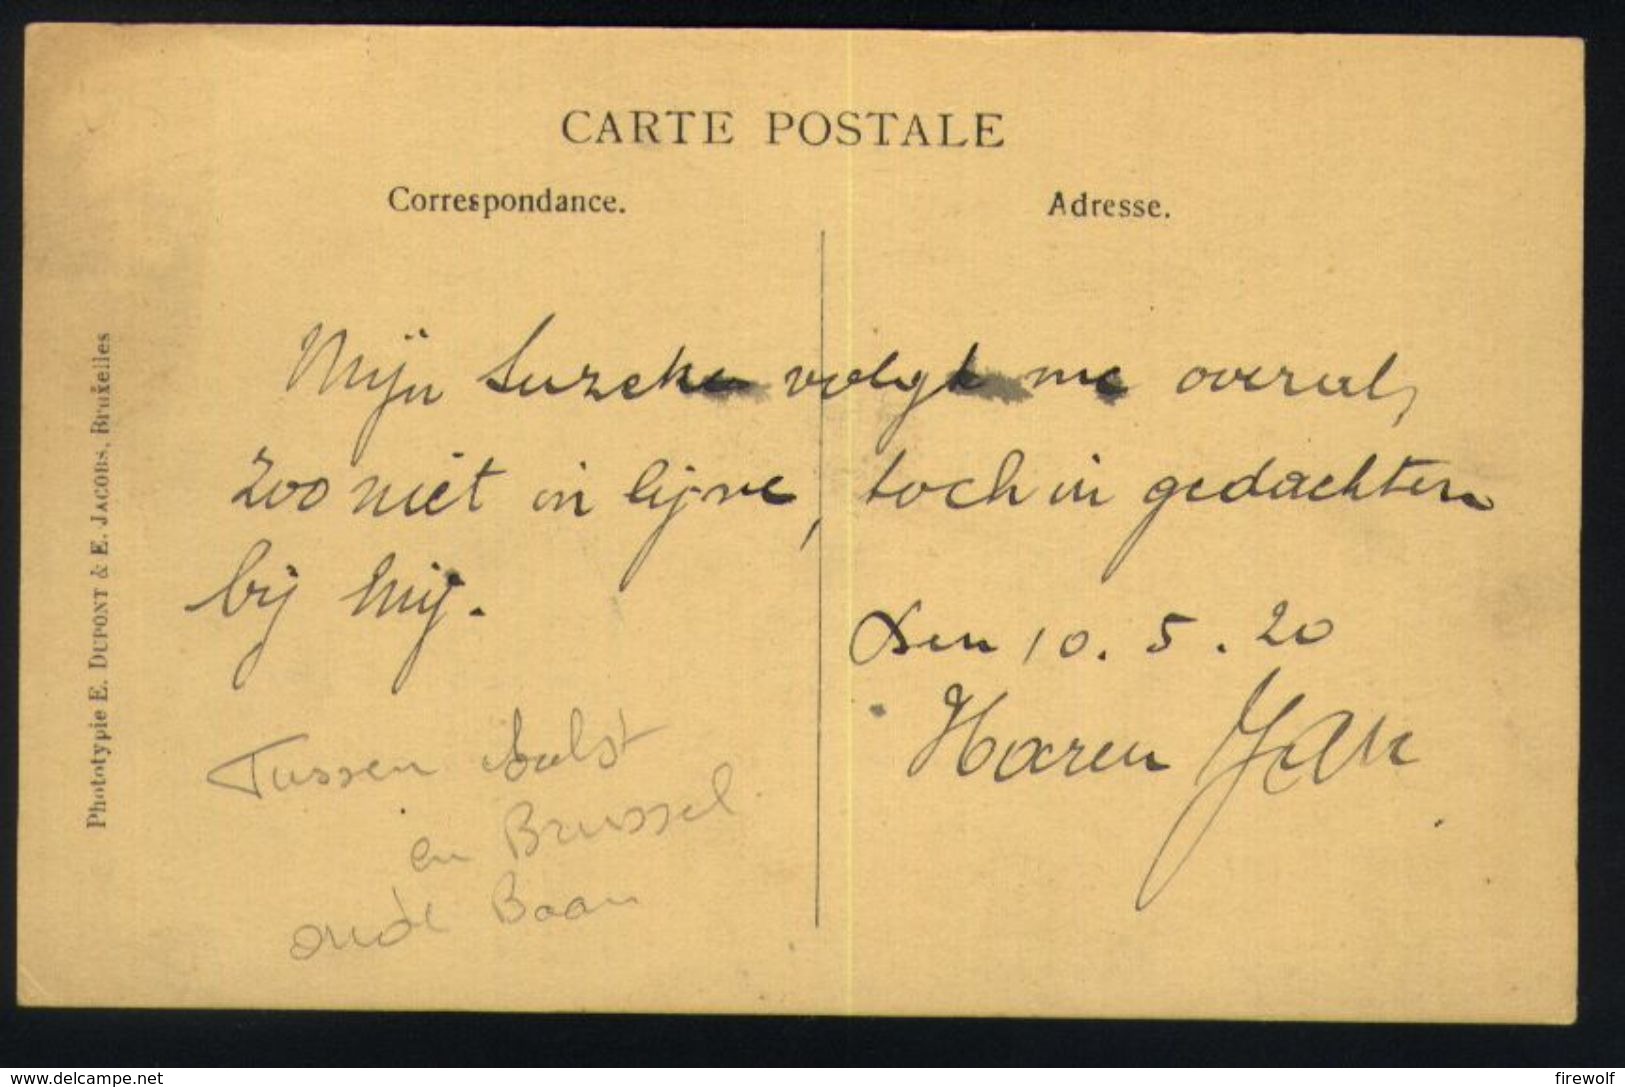 CARTE POSTALE
Correspondance.
Adresse.
Mijn Suzeke volgt me overal,
zoo niet in lijve, toch in gedachten
bij mij.
Den 10.5.20
Haren
Tussen Aalst
en Brussel
oude Baan
Phototypie E. DUPONT & E. JACOBS, Bruxelles
www.delcampe.net
firewolf